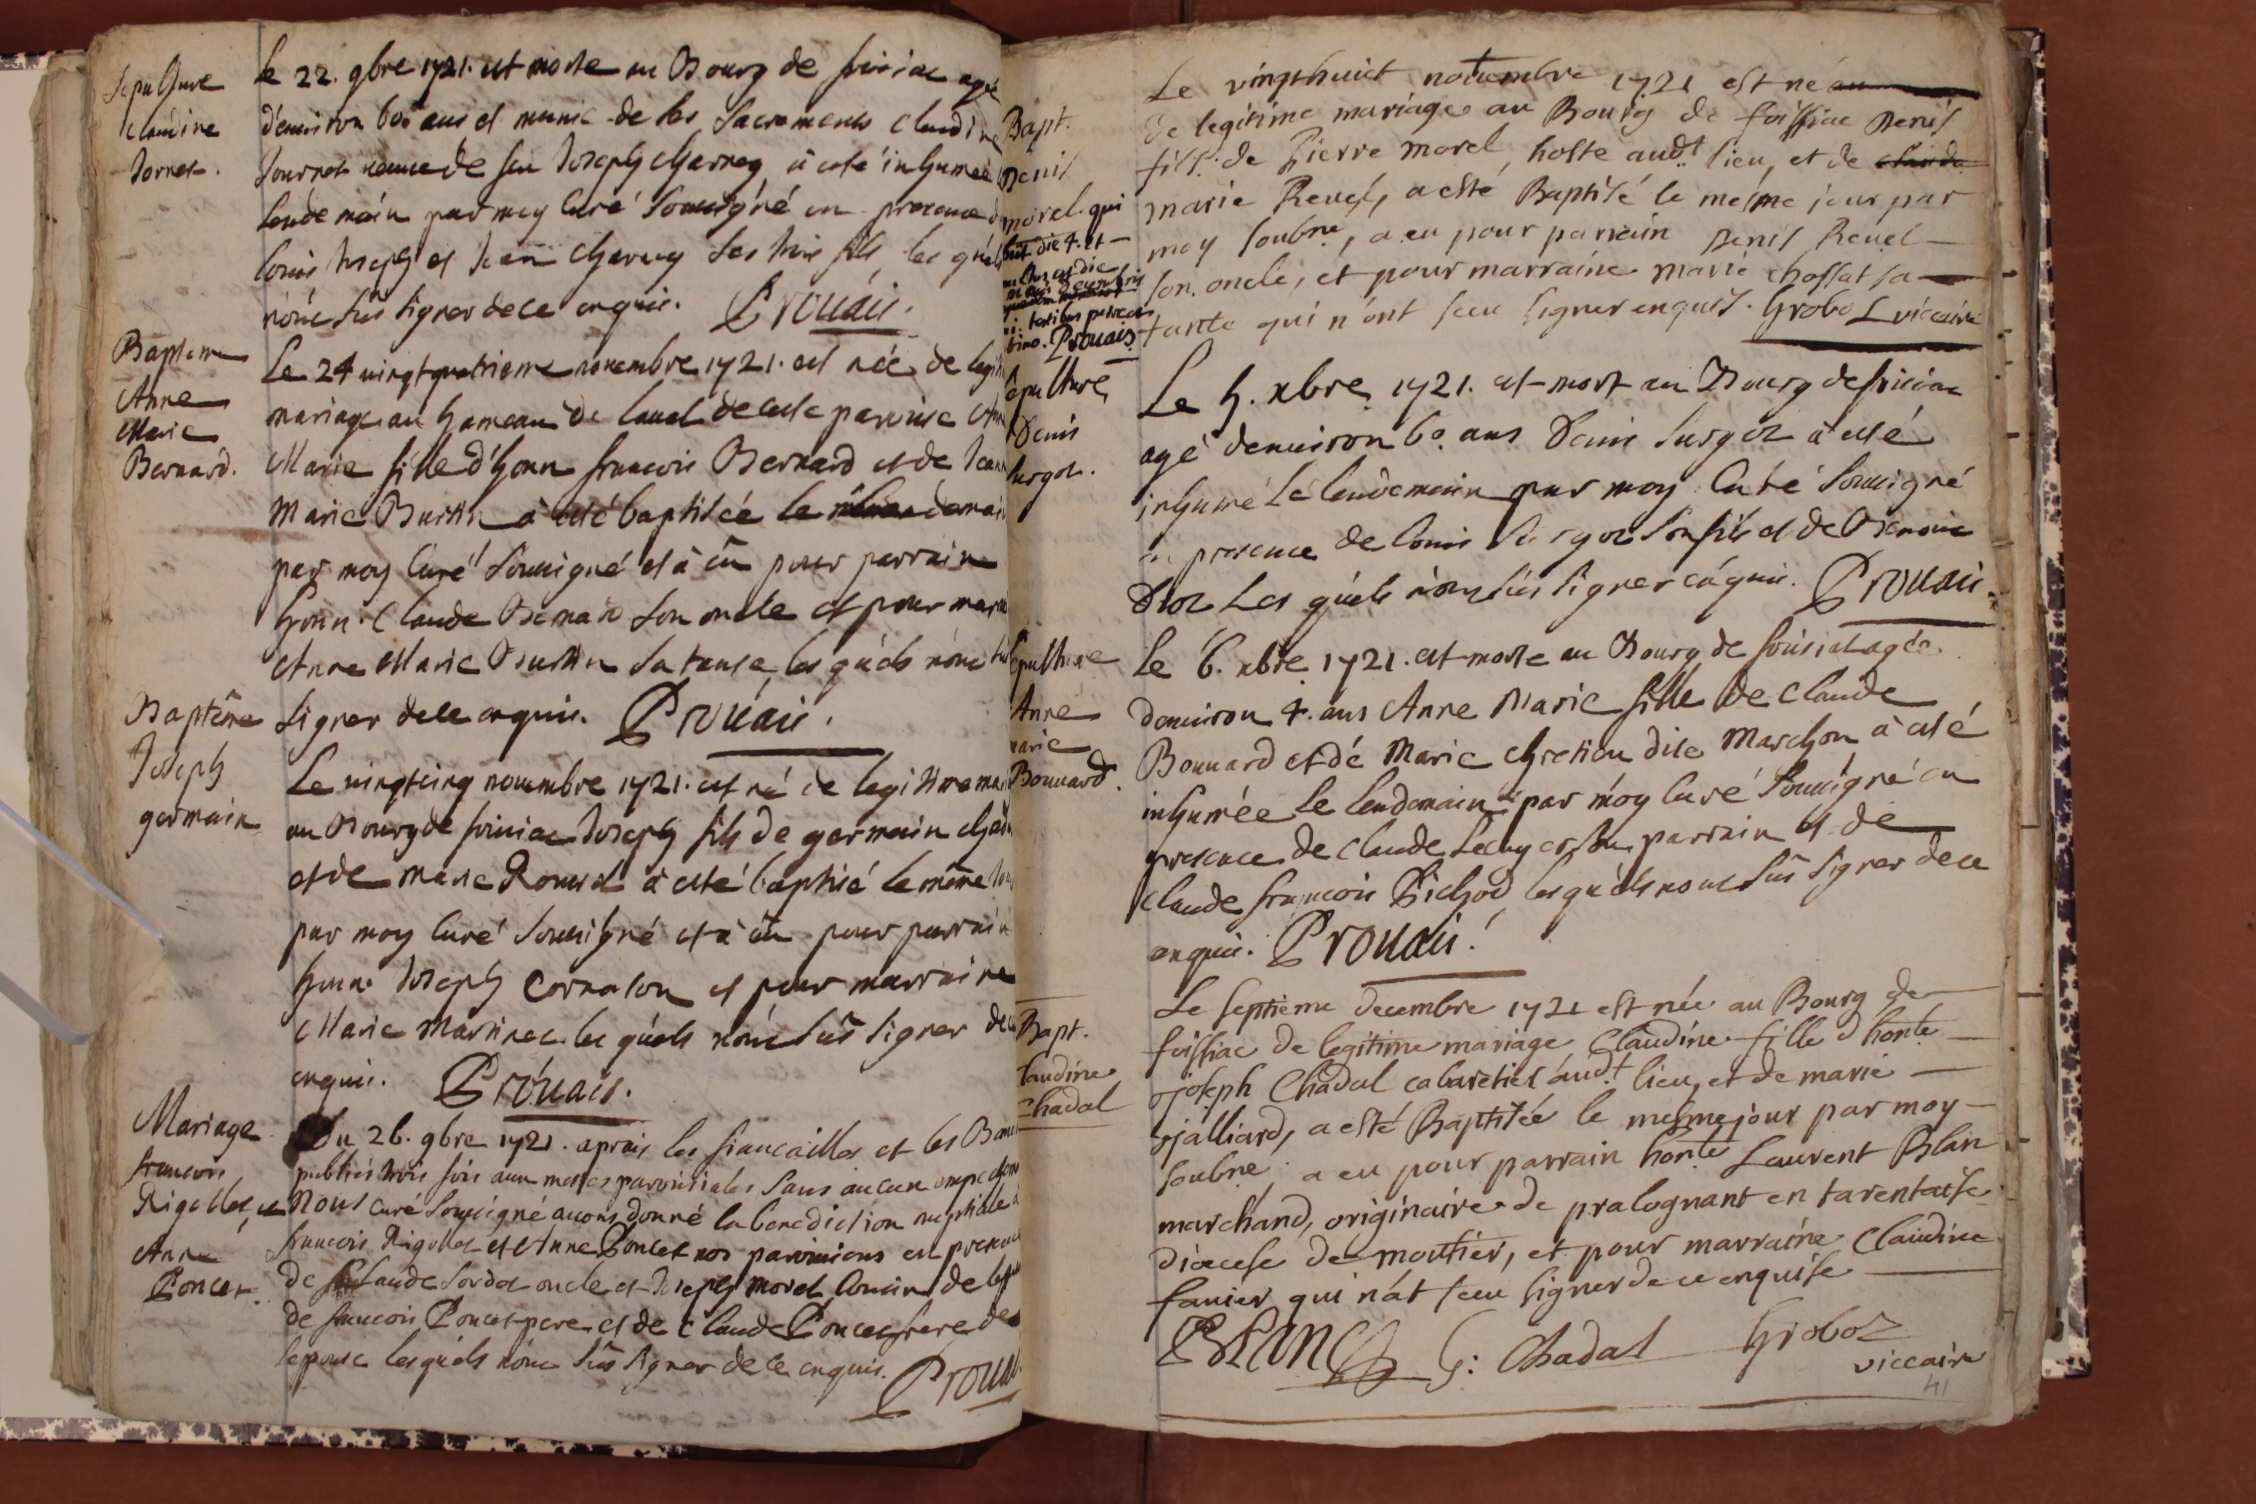 Sepulture
Claudine
Jornet.
Le 22. 9bre 1721. est morte au Bourg de foissiac agée
d'enuiron 60 ans et munie de les Sacrements Claudine
Journet veuue de feu Joseph Charney à esté inhumée
lendemain par moy Curé Soussigné en presence de
Louis Joseph et Jean Charney Ses trois fils les quels
n'ont Sus signer de ce enquis. Prouais.
Bapteme
Anne
Marie
Bernard.
Le 24 uingtquatrieme nouembre 1721. est née de legit
mariage au hameau de laual de ceste paroisse Anne
Marie fille d'honn françois Bernard et de Jeanne
Marie Buttin à esté baptisée le demain
par moy Curé Soussigné et à eû pour parrain
honn. Claude Bernard Son oncle et pour marr
Anne Marie Buttin Sa tante les quels n'ont Sus
Signer de ce enquis. Prouais.
Baptême
Joseph
germain
Le uingtcinq nouembre 1721. est né de legitime ma
au Bourg de foissiac Joseph fils de germain
et de Marie Rouard à esté baptisé le même Jour
par moy Curé Soussigné et à eû pour parrain
honn. Joseph Cornalon et pour marraine
Marie Martinec les quels n'ont Sus Signer de ce
enquis. Prouais.
Mariage
françois
Rigollet, et
Anne
Poncet.
Du 26. 9bre 1721. aprais les fiançailles et les Bans
publiés trois fois aux messes paroissiales Sans aucun empechem
Nous curé Soussigné auons donné la benediction nuptiale à
françois Rigollet et Anne Poncet nos paroissiens en presence
de Claude Sordet oncle et Joseph Morel Cousin de lepoux
de françois Poncet pere et de Claude Poncet frere de
lepouse lesquels n'ont Sus Signer de ce enquis. Prouais
Bapt.
Denis
morel. qui
Prouais
Le vingthuict nouembre 1721 est né
de legitime mariage au Bourg de foissiac Denis
fils de Pierre Morel, hoste aud.t lieu, et de
marie Reuel, a esté Baptisé le mesme jour par
moy soubne, a eu pour parrain Denis Reuel
son oncle, et pour marraine marie Chossat sa
tante qui n'ont sceu signer enquis. Groboz viccaire
Sepulture
Denis
Surgot.
Le 5. xbre 1721. est mort au Bourg de foissiac
agé denuiron 60. ans Denis Surgot à esté
inhumé Le lendemain par moy Curé Soussigné
en presence de Louis Surgot Son fils et de Benoit
Droz Les quels n'ont Sus Signer enquis. Prouais.
Sepulture
Anne
marie
Bouuard.
Le 6. xbre 1721. est morte au Bourg de foissiat agée
denuiron 4. ans Anne Marie fille de Claude
Bouuard et de Marie Chretien dite Marchon à esté
inhumée le lendemain par moy Curé Soussigné en
presence de Claude Son parrain et de
Claude françois Pichod, lesquels nont Sus Signer de ce
enquis. Prouais.
Bapt.
Claudine
Chadal
Le septieme decembre 1721 est née au Bourg de
foissiac de legitime mariage Claudine fille d'honte
Joseph Chadal cabaretier aud.t lieu, et de marie
Jalliard, a esté Baptisée le mesme jour par moy
soubne, a eu pour parrain honte Laurent Blan
marchand, originaire de pralognant en tarentaise
diocese de moutier, et pour marraine Claudine
fauier qui n'at sceu signer de ce enquise
Blanc G: Chadal Groboz
viccaire
41